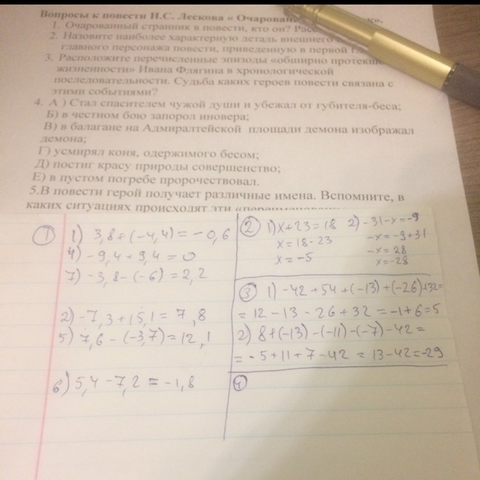 Вопросы к повести Н.С. Лескова « Очарован
1. Очарованный странник в повести, кто он?
2. Назовите наиболее характерную деталь внешнего
главного персонажа повести, приведенную в первой
3. Расположите перечисленные эпизоды «обширно протекшей
жизненности» Ивана Флягина в хронологической
последовательности. Судьба каких героев повести связана с
этими событиями?
4. А ) Стал спасителем чужой души и убежал от губителя-беса;
Б) в честном бою запорол иноверца;
В) в балагане на Адмиралтейской площади демона изображал
демона;
Г) усмирял коня, одержимого бесом;
Д) постиг красу природы совершенство;
Е) в пустом погребе пророчествовал.
5.В повести герой получает различные имена. Вспомните, в
каких ситуациях происходят эти
① 1) 3,8+(-4,4)=-0,6
4) -9,4+9,4=0
7) -3,8-(-6)=2,2
2) -7,3+15,1=7,8
5) 7,6-(-3,7)=12,1
6) 5,4-7,2=-1,8
② 1) x+23=18 2) -31-x=-9
x=18-23 -x=-9+31
x=-5 -x=28
x=-28
③ 1) -42+54+(-13)+(-26)+32=
=12-13-26+32=-1+6=5
2) 8+(-13)-(-11)-(-7)-42=
=-5+11+7-42=13-42=-29
④